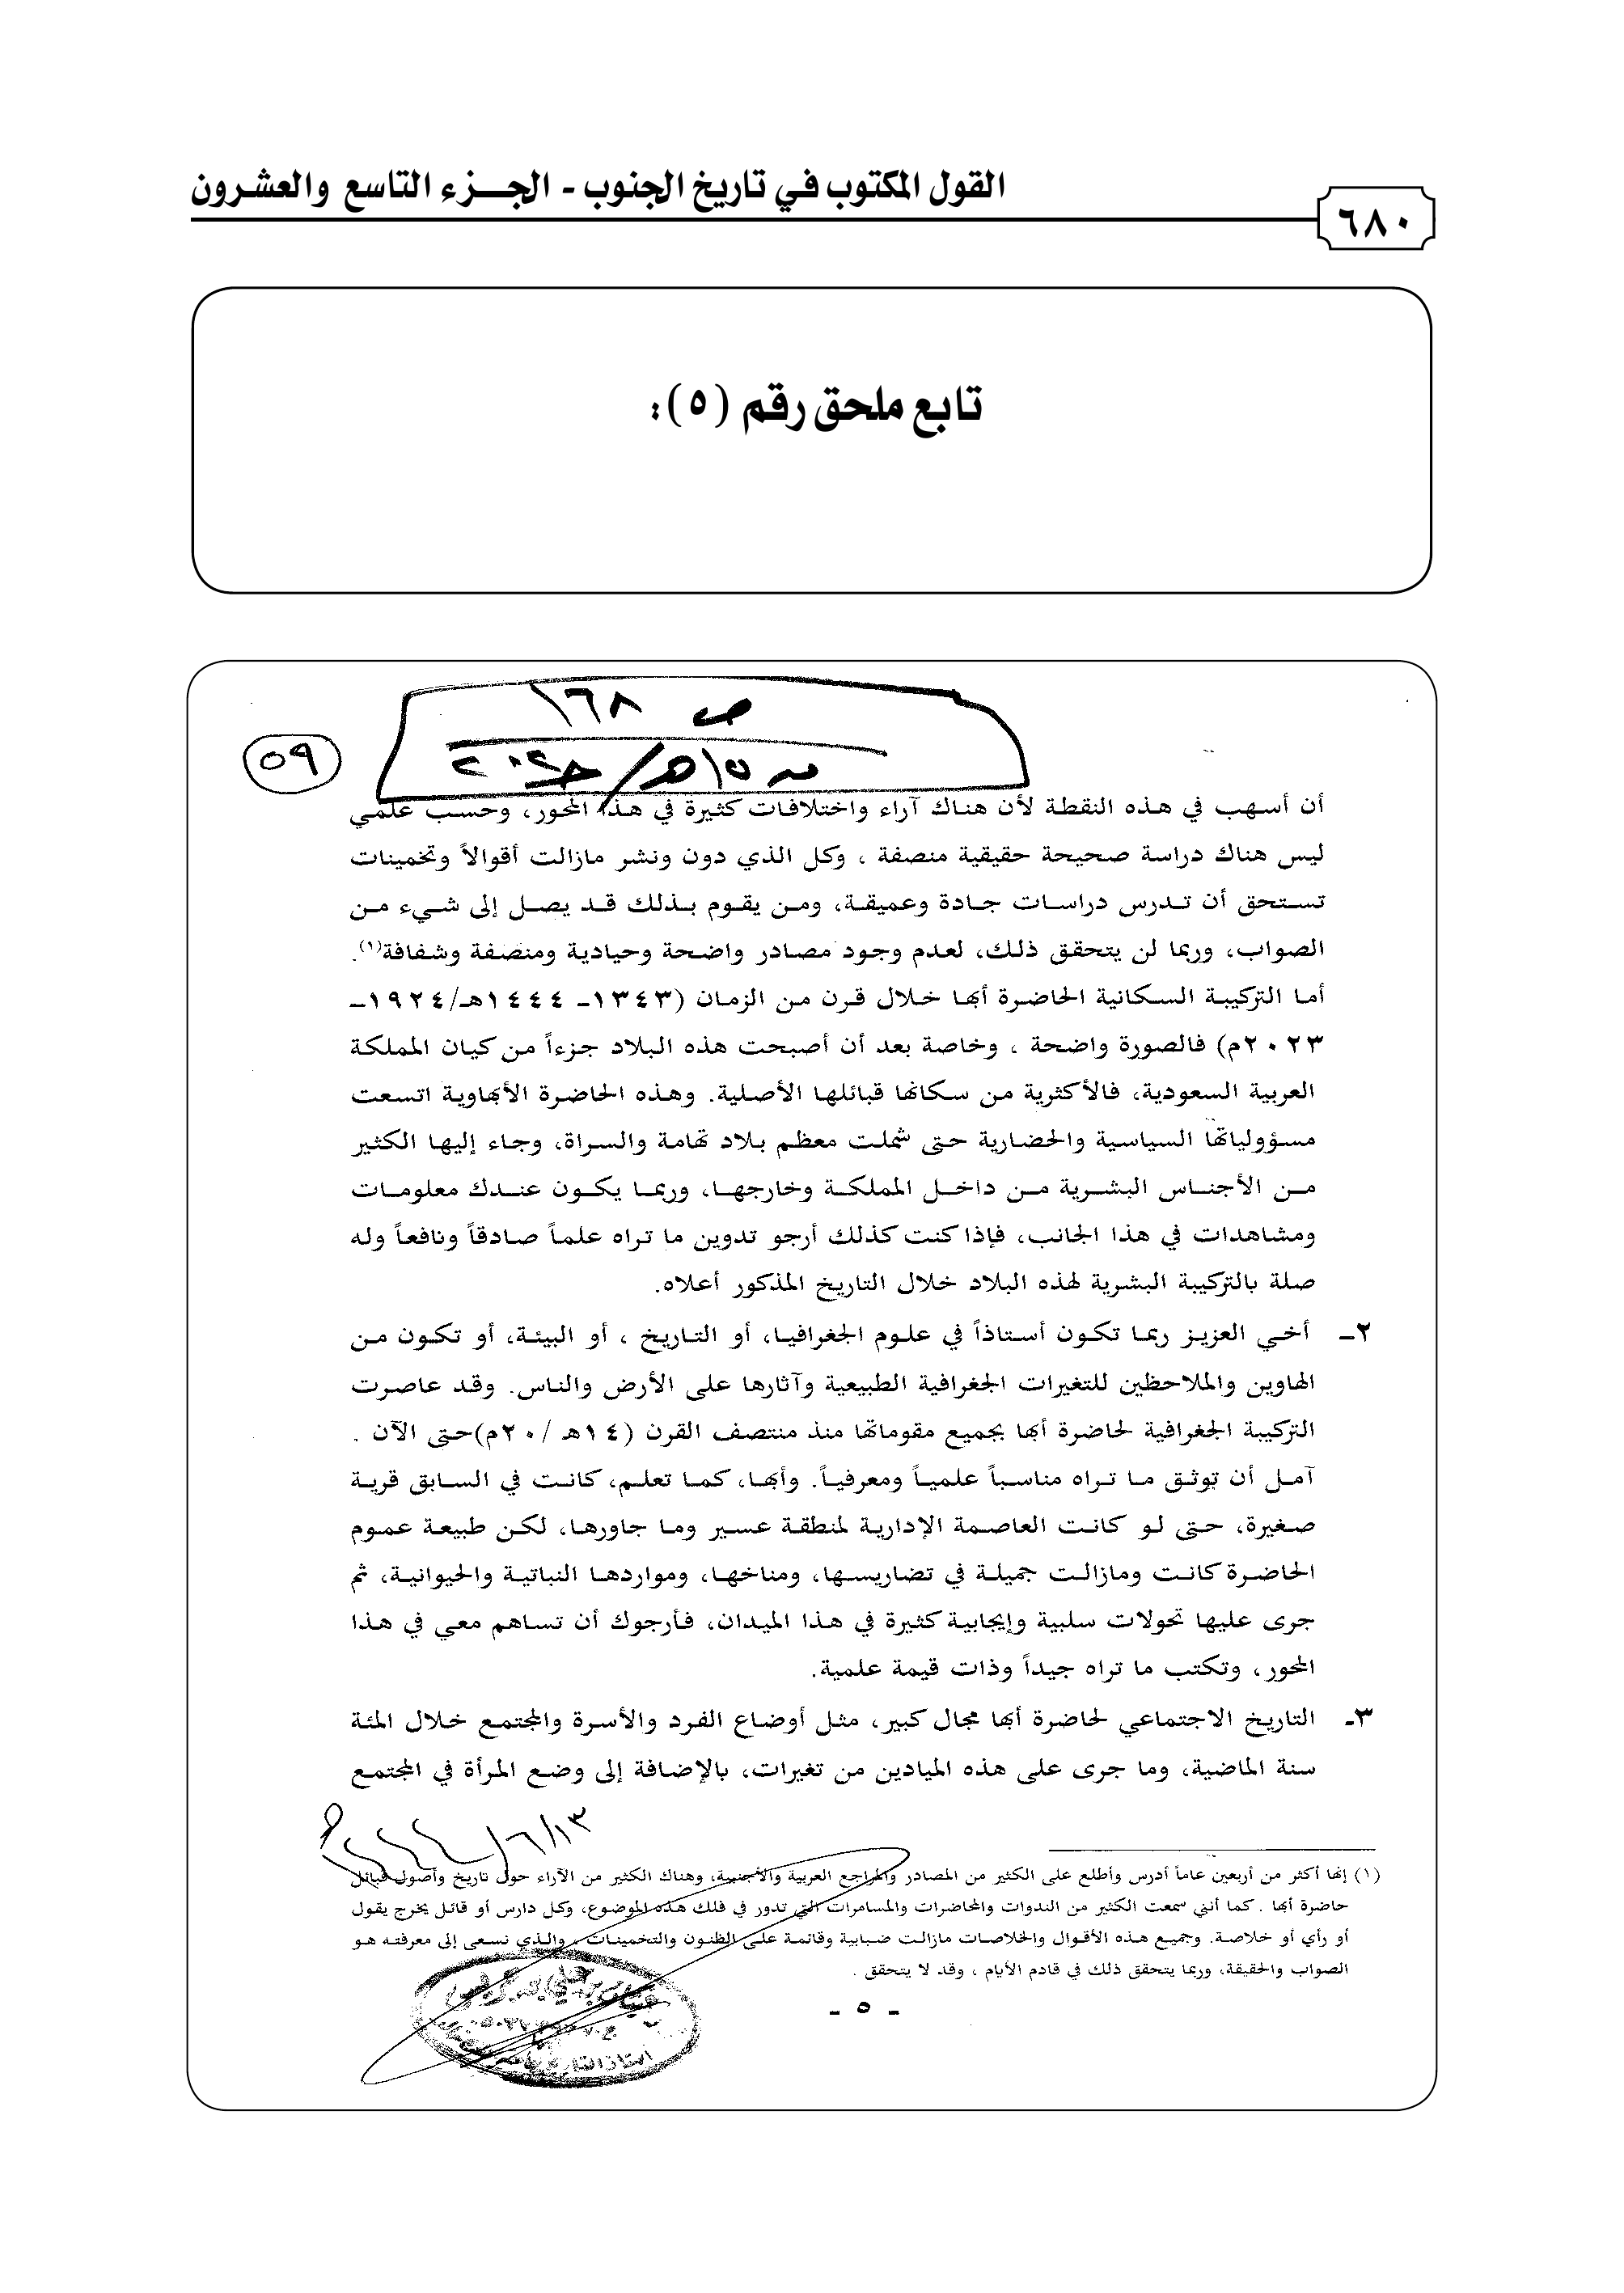 القول المكتوب في تاريخ الجنوب - الجـــزء التاسع والعشـرون
٦٨٠
تابع ملحق رقم (٥):
ص ١٦٨
٥٩
أن أسهب في هذه النقطة لأن هناك آراء واختلافات كثيرة في هذا المحور، وحسب علمي
ليس هناك دراسة صحيحة حقيقية منصفة ، وكل الذي دون ونشر مازالت أقوالاً وتخمينات
تستحق أن تدرس دراسات جادة وعميقة، ومن يقوم بذلك قد يصل إلى شيء من
الصواب، وربما لن يتحقق ذلك، لعدم وجود مصادر واضحة وحيادية ومنصفة وشفافة(١).
أما التركيبة السكانية الحاضرة أبها خلال قرن من الزمان (١٣٤٣- ١٤٤٤هـ/١٩٢٤-
٢٠٢٣م) فالصورة واضحة ، وخاصة بعد أن أصبحت هذه البلاد جزءاً من كيان المملكة
العربية السعودية، فالأكثرية من سكانها قبائلها الأصلية. وهذه الحاضرة الأبهاوية اتسعت
مسؤولياتها السياسية والحضارية حتى شملت معظم بلاد تهامة والسراة، وجاء إليها الكثير
من الأجناس البشرية من داخل المملكة وخارجها، وربما يكون عندك معلومات
ومشاهدات في هذا الجانب، فإذا كنت كذلك أرجو تدوين ما تراه علماً صادقاً ونافعاً وله
صلة بالتركيبة البشرية لهذه البلاد خلال التاريخ المذكور أعلاه.
٢- أخي العزيز ربما تكون أستاذاً في علوم الجغرافيا، أو التاريخ ، أو البيئة، أو تكون من
الهاوين والملاحظين للتغيرات الجغرافية الطبيعية وآثارها على الأرض والناس. وقد عاصرت
التركيبة الجغرافية لحاضرة أبها بجميع مقوماتها منذ منتصف القرن (١٤هـ /٢٠م)حتى الآن .
آمل أن توثق ما تراه مناسباً علمياً ومعرفياً. وأبها، كما تعلم، كانت في السابق قرية
صغيرة، حتى لو كانت العاصمة الإدارية لمنطقة عسير وما جاورها، لكن طبيعة عموم
الحاضرة كانت ومازالت جميلة في تضاريسها، ومناخها، ومواردها النباتية والحيوانية، ثم
جرى عليها تحولات سلبية وإيجابية كثيرة في هذا الميدان، فأرجوك أن تساهم معي في هذا
المحور، وتكتب ما تراه جيداً وذات قيمة علمية.
٣- التاريخ الاجتماعي لحاضرة أبها مجال كبير، مثل أوضاع الفرد والأسرة والمجتمع خلال المئة
سنة الماضية، وما جرى على هذه الميادين من تغيرات، بالإضافة إلى وضع المرأة في المجتمع
(١) إنها أكثر من أربعين عاماً أدرس وأطلع على الكثير من المصادر والمراجع العربية والأجنبية، وهناك الكثير من الآراء حول تاريخ وأصول قبائل
حاضرة أبها . كما أنني سمعت الكثير من الندوات والمحاضرات والمسامرات التي تدور في فلك هذه الموضوع، وكل دارس أو قائل يخرج يقول
أو رأي أو خلاصة. وجميع هذه الأقوال والخلاصات مازالت ضبابية وقائمة على الظنون والتخمينات ، والذي نسعى إلى معرفته هو
الصواب والحقيقة، وربما يتحقق ذلك في قادم الأيام ، وقد لا يتحقق .
- ٥ -